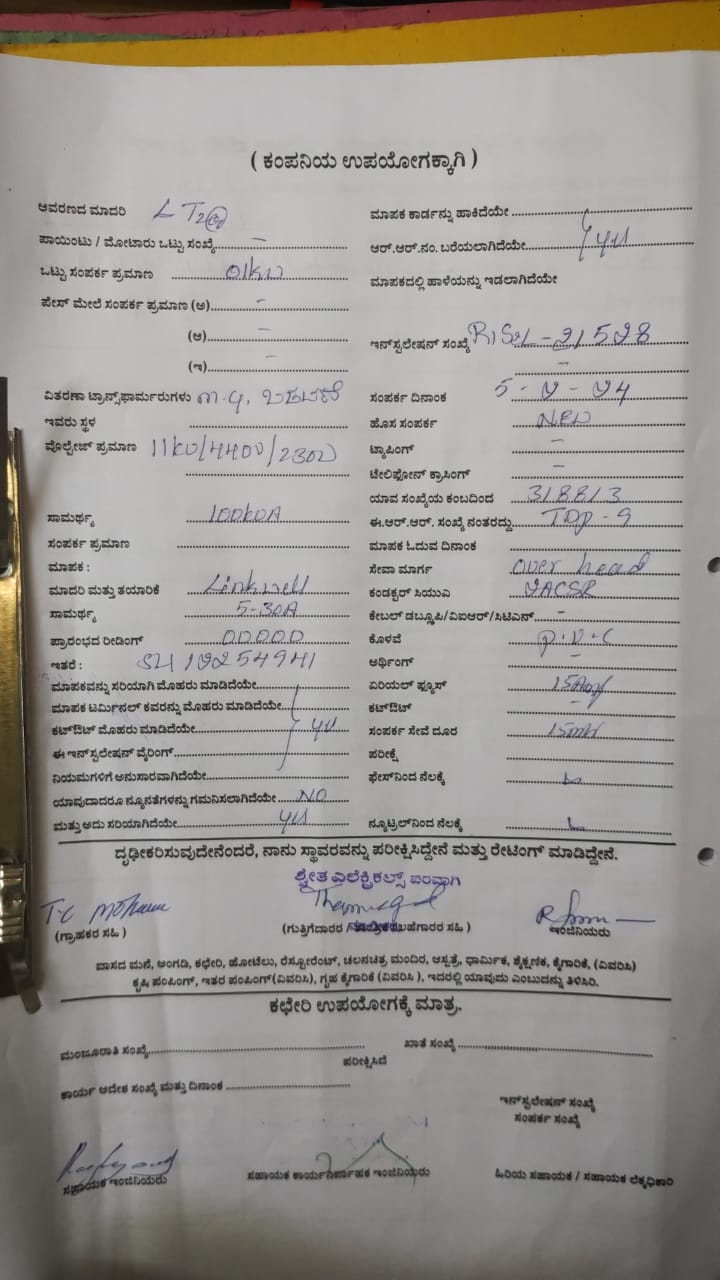 ( ಕಂಪನಿಯ ಉಪಯೋಗಕ್ಕಾಗಿ )
ಆವರಣದ ಮಾದರಿ LT2
ಪಾಯಿಂಟು / ಮೋಟಾರು ಒಟ್ಟು ಸಂಖ್ಯೆ -
ಒಟ್ಟು ಸಂಪರ್ಕ ಪ್ರಮಾಣ 01kw
ಪೇಸ್ ಮೇಲೆ ಸಂಪರ್ಕ ಪ್ರಮಾಣ (ಅ) -
(ಆ) -
(ಇ) -
ವಿತರಣಾ ಟ್ರಾನ್ಸ್‌ಫಾರ್ಮರುಗಳು
ಇವರು ಸ್ಥಳ
ವೋಲ್ಟೇಜ್ ಪ್ರಮಾಣ 11kv/440v/230v
ಸಾಮರ್ಥ್ಯ 100kVA
ಸಂಪರ್ಕ ಪ್ರಮಾಣ
ಮಾಪಕ :
ಮಾದರಿ ಮತ್ತು ತಯಾರಿಕೆ Linkwell
ಸಾಮರ್ಥ್ಯ 5-30A
ಪ್ರಾರಂಭದ ರೀಡಿಂಗ್ 00000
ಇತರೆ :
ಮಾಪಕವನ್ನು ಸರಿಯಾಗಿ ಮೊಹರು ಮಾಡಿದೆಯೇ
ಮಾಪಕ ಟರ್ಮಿನಲ್ ಕವರನ್ನು ಮೊಹರು ಮಾಡಿದೆಯೇ
ಕಟ್‌ಔಟ್ ಮೊಹರು ಮಾಡಿದೆಯೇ yes
ಈ ಇನ್‌ಸ್ಟಲೇಷನ್ ವೈರಿಂಗ್
ನಿಯಮಗಳಿಗೆ ಅನುಸಾರವಾಗಿದೆಯೇ
ಯಾವುದಾದರೂ ನ್ಯೂನತೆಗಳನ್ನು ಗಮನಿಸಲಾಗಿದೆಯೇ NO
ಮತ್ತು ಅದು ಸರಿಯಾಗಿದೆಯೇ yes
ಮಾಪಕ ಕಾರ್ಡನ್ನು ಹಾಕಿದೆಯೇ
ಆರ್.ಆರ್.ನಂ. ಬರೆಯಲಾಗಿದೆಯೇ yes
ಮಾಪಕದಲ್ಲಿ ಹಾಳೆಯನ್ನು ಇಡಲಾಗಿದೆಯೇ
ಇನ್‌ಸ್ಟಲೇಷನ್ ಸಂಖ್ಯೆ
-
ಸಂಪರ್ಕ ದಿನಾಂಕ
ಹೊಸ ಸಂಪರ್ಕ NEW
ಟ್ಯಾಪಿಂಗ್ -
ಟೆಲಿಫೋನ್ ಕ್ರಾಸಿಂಗ್ -
ಯಾವ ಸಂಖ್ಯೆಯ ಕಂಬದಿಂದ 318813
ಈ.ಆರ್.ಆರ್. ಸಂಖ್ಯೆ ನಂತರದ್ದು
ಮಾಪಕ ಓದುವ ದಿನಾಂಕ
ಸೇವಾ ಮಾರ್ಗ over head
ಕಂಡಕ್ಟರ್ ಸಿಯುಎ
ಕೇಬಲ್ ಡಬ್ಲ್ಯೂಪಿ/ವಿಐಆರ್/ಸಿಟಿಎಸ್ -
ಕೊಳವೆ P.V.C
ಅರ್ಥಿಂಗ್ -
ಏರಿಯಲ್ ಫ್ಯೂಸ್ 15Amp
ಕಟ್‌ಔಟ್ -
ಸಂಪರ್ಕ ಸೇವೆ ದೂರ 15mtr
ಪರೀಕ್ಷೆ
ಫೇಸ್‌ನಿಂದ ನೆಲಕ್ಕೆ
ನ್ಯೂಟ್ರಲ್‌ನಿಂದ ನೆಲಕ್ಕೆ
ದೃಢೀಕರಿಸುವುದೇನೆಂದರೆ, ನಾನು ಸ್ಥಾವರವನ್ನು ಪರೀಕ್ಷಿಸಿದ್ದೇನೆ ಮತ್ತು ರೇಟಿಂಗ್ ಮಾಡಿದ್ದೇನೆ.
ಶ್ವೇತ ಎಲೆಕ್ಟ್ರಿಕಲ್ಸ್ ಪರವಾಗಿ
(ಗ್ರಾಹಕರ ಸಹಿ )
(ಗುತ್ತಿಗೆದಾರರ / ಸಹಿ )
ಇಂಜಿನಿಯರು
ವಾಸದ ಮನೆ, ಅಂಗಡಿ, ಕಛೇರಿ, ಹೋಟೆಲು, ರೆಸ್ಟೋರೆಂಟ್, ಚಲನಚಿತ್ರ ಮಂದಿರ, ಆಸ್ಪತ್ರೆ, ಧಾರ್ಮಿಕ, ಶೈಕ್ಷಣಿಕ, ಕೈಗಾರಿಕೆ, (ವಿವರಿಸಿ)
ಕೃಷಿ ಪಂಪಿಂಗ್, ಇತರ ಪಂಪಿಂಗ್(ವಿವರಿಸಿ), ಗೃಹ ಕೈಗಾರಿಕೆ (ವಿವರಿಸಿ ), ಇದರಲ್ಲಿ ಯಾವುದು ಎಂಬುದನ್ನು ತಿಳಿಸಿರಿ.
ಕಛೇರಿ ಉಪಯೋಗಕ್ಕೆ ಮಾತ್ರ.
ಮಂಜೂರಾತಿ ಸಂಖ್ಯೆ ಖಾತೆ ಸಂಖ್ಯೆ
ಪರೀಕ್ಷಿಸಿದೆ
ಕಾರ್ಯ ಆದೇಶ ಸಂಖ್ಯೆ ಮತ್ತು ದಿನಾಂಕ
ಇನ್‌ಸ್ಟಲೇಷನ್ ಸಂಖ್ಯೆ
ಸಂಪರ್ಕ ಸಂಖ್ಯೆ
ಸಹಾಯಕ ಇಂಜಿನಿಯರು
ಸಹಾಯಕ ಕಾರ್ಯನಿರ್ವಾಹಕ ಇಂಜಿನಿಯರು
ಹಿರಿಯ ಸಹಾಯಕ / ಸಹಾಯಕ ಲೆಕ್ಕಧಿಕಾರಿ